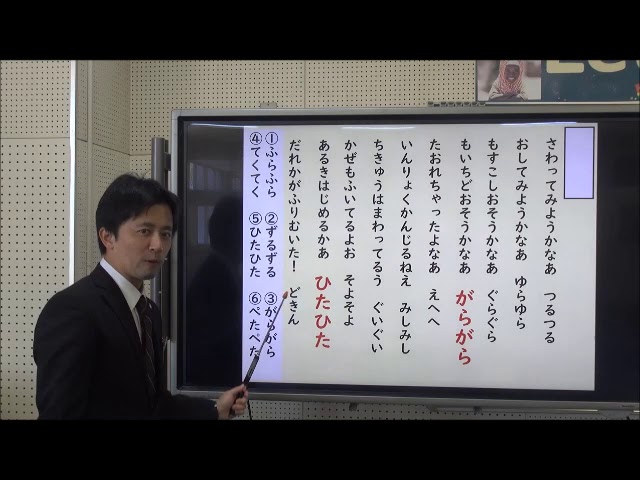 さわってみようかなあ　つるつる
おしてみようかなあ　ゆらゆら
もすこしおそうかなあ　ぐらぐら
もいちどおそうかなあ　がらがら
たおれちゃったよなあ　えへへ
いんりょくかんじるねえ　みしみし
ちきゅうはまわってるう　ぐいぐい
かぜもふいてるよお　そよそよ
あるきはじめるかあ　ひたひた
だれかがふりむいた！　どきん
①ふらふら　②ずるずる　③がらがら
④てくてく　⑤ひたひた　⑥ぺたぺた